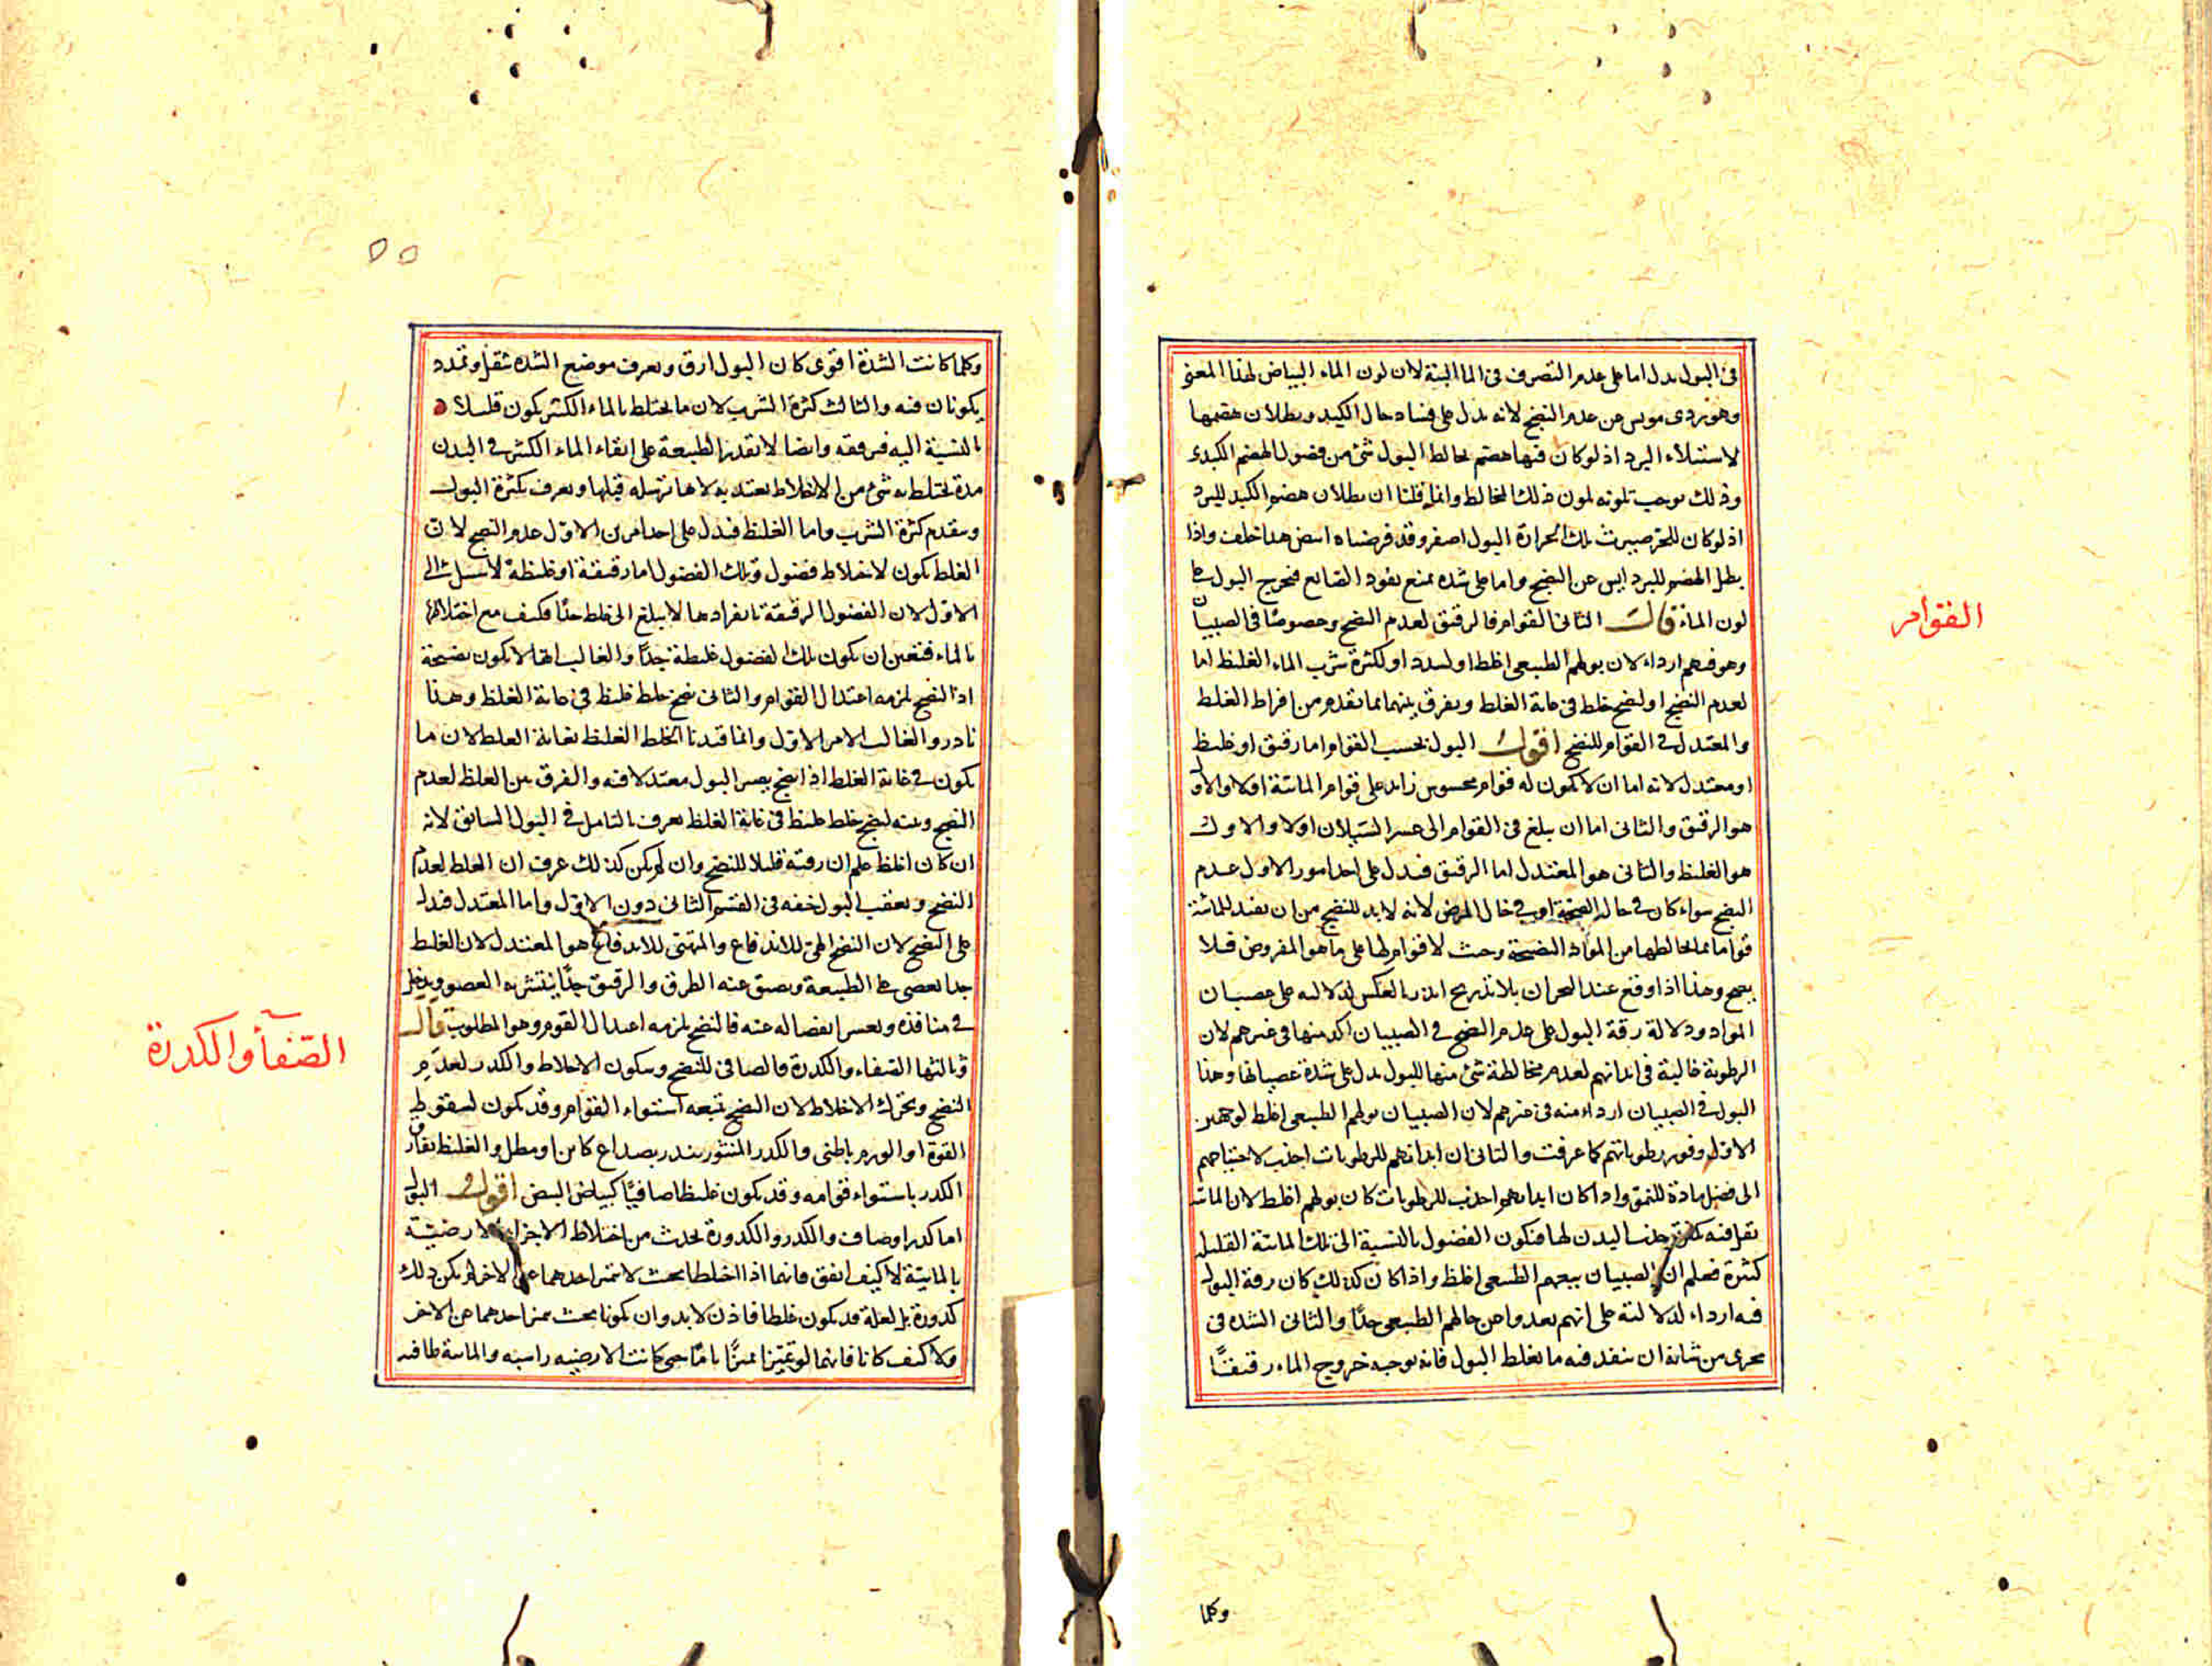 فى البول يدل اما على عدم التصرف فى الماء البتة لان لون الماء البياض لهذا المعنى
وهو ردى مويس عن عدم النضج لانه يدل على فساد حال الكبد وبطلان هضمها
لاستيلاء البرد اذ لو كان فيها هضم لخالط البول شئ من فضول الهضم الكبدى
وذلك يوجب تلونه بلون ذلك المخالط وانما قلنا ان بطلان هضم الكبد للبرد
اذ لو كان للحر صيرت تلك الحرارة البول اصفر وقد فرضناه ابيض هذا خلف واذا
بطل الهضم للبرد ايس عن النضج واما على سدة تمنع نفوذ الصابغ فخرج البول على
لون الماء قال الثانى القوام فالرقيق لعدم النضج وخصوصا فى الصبيان
وهو فيهم ارداء لان بولهم الطبيعى اغلظ او لسدد او لكثرة شرب الماء الغليظ اما
لعدم النضج او لنضج خلط فى غاية الغلظ ويفرق بينهما بما تقدم من افراط الغلظ
والمعتدل فى القوام للنضج اقول البول بحسب القوام اما رقيق او غليظ
او معتدل لانه اما ان لا يكون له قوام محسوس زايد على قوام المائية او لا والاول
هو الرقيق والثانى اما ان يبلغ فى القوام الى عسر السيلان او لا والاول
هو الغليظ والثانى هو المعتدل اما الرقيق فيدل على احد امور الاول عدم
النضج سواء كان فى حال الصحة او فى حال المرض لانه لابد للنضج من ان يفيد المائية
قواما بما يخالطها من المواد النضيجة وحيث لا قوام لها على ما هو المفروض فلا
نضج وهذا اذا وقع عند البحران بلا تدريج انذر بالنكس لدلالته على عصيان
المواد ودلالة رقة البول على عدم النضج فى الصبيان اكد منها فى غيرهم لان
الرطوبة غالبة فى ابدانهم لعدم مخالطة شئ منها للبول يدل على شدة عصيانها وهذا
البول فى الصبيان ارداء منه فى غيرهم لان الصبيان بولهم الطبيعى اغلظ لوجهين
الاول وفور رطوباتهم كما عرفت والثانى ان ابدانهم للرطوبات اجذب لاحتياجهم
الى فضل مادة للنمو واذا كان ابدانهم اجذب للرطوبات كان بولهم اغلظ لان المائية
تقل فيه لكثرة جذب البدن لها فتكون الفضول بالنسبة الى تلك المائية القليلة
كثيرة فعلم ان الصبيان بولهم الطبيعى اغلظ واذا كان كذلك كان رقة البول
فيه ارداء لدلالته على انهم بعدوا عن حالهم الطبيعى جدا والثانى السدة فى
مجرى من شانه ان ينفذ فيه ما يغلظ البول فانه يوجب خروج الماء رقيقا
القوام
وكلما
وكلما كانت السدة اقوى كان البول ارق ويعرف موضع السدة بثقل وتمدد
يكونان فيه والثالث كثرة الشرب لان ما يختلط بالماء الكثير يكون قليلا
بالنسبة اليه فيرققه وايضا لا تقدر الطبيعة على ابقاء الماء الكثير فى البدن
مدة يختلط به شئ من الاخلاط يعتد به لانها ترسله قبلها ويعرف بكثرة البول
وتقدم كثرة الشرب واما الغليظ فيدل على احد امرين الاول عدم النضج لان
الغلظ يكون لاختلاط فضول وتلك الفضول اما رقيقة او غليظة لا سبيل الى
الاول لان الفضول الرقيقة بانفرادها لا يبلغ الى غلظ جدا فكيف مع اختلاطها
بالماء فتعين ان يكون تلك الفضول غليظة جدا والغالب انها لا يكون نضيجة
اذ النضج يلزمه اعتدال القوام والثانى نضج خلط غليظ فى غاية الغلظ وهذا
نادر والغالب الامر الاول وانما قيدنا الخلط الغليظ بغاية الغلظ لان ما
يكون فى غاية الغلظ اذا نضج يصير البول معتدلا فيه والفرق بين الغلظ لعدم
النضج وبينه لنضج خلط غليظ فى غاية الغلظ يعرف بالتامل فى البول السابق لانه
ان كان اغلظ علم ان رقته قليلا للنضج وان لم يكن كذلك عرف ان الغلظ لعدم
النضج ويعقب البول خفه فى القسم الثانى دون الاول واما المعتدل فيدل
على النضج لان النضج المهيئ للاندفاع والمتهيئ للاندفاع هو المعتدل لان الغليظ
جدا يعصى على الطبيعة ويضيق عنه الطرق والرقيق جدا يتشربه العضو ويدخل
فى منافذه ويعسر انفصاله عنه فالنضج يلزمه اعتدال القوام وهو المطلوب قال
وثالثها الصفاء والكدرة فالصافى للنضج وسكون الاخلاط والكدر لعدم
النضج وتحرك الاخلاط لان النضج تتبعه استواء القوام وقد يكون لسقوط
القوة او لورم باطنى والكدر المنثور ينذر بصداع كاين او مطل والغليظ يفارق
الكدر باستواء قوامه وقد يكون غليظا صافيا كبياض البيض اقول البول
اما كدر او صاف والكدر والكدورة يحدث من اختلاط الاجزاء الارضية
بالمائية لا كيف اتفق فانهما اذا اختلطا بحيث لا يتميز احدهما عن الاخر لم يكن ذلك
كدورة بل لعله قد يكون غلظا فاذن لا بد وان يكونا بحيث يتميز احدهما عن الاخر
ولا كيف كانا فانهما لو تميزا تميزا تاما حتى كانت الارضيه راسبه والمائية طافيه
الصفآ والكدرة
٥٥